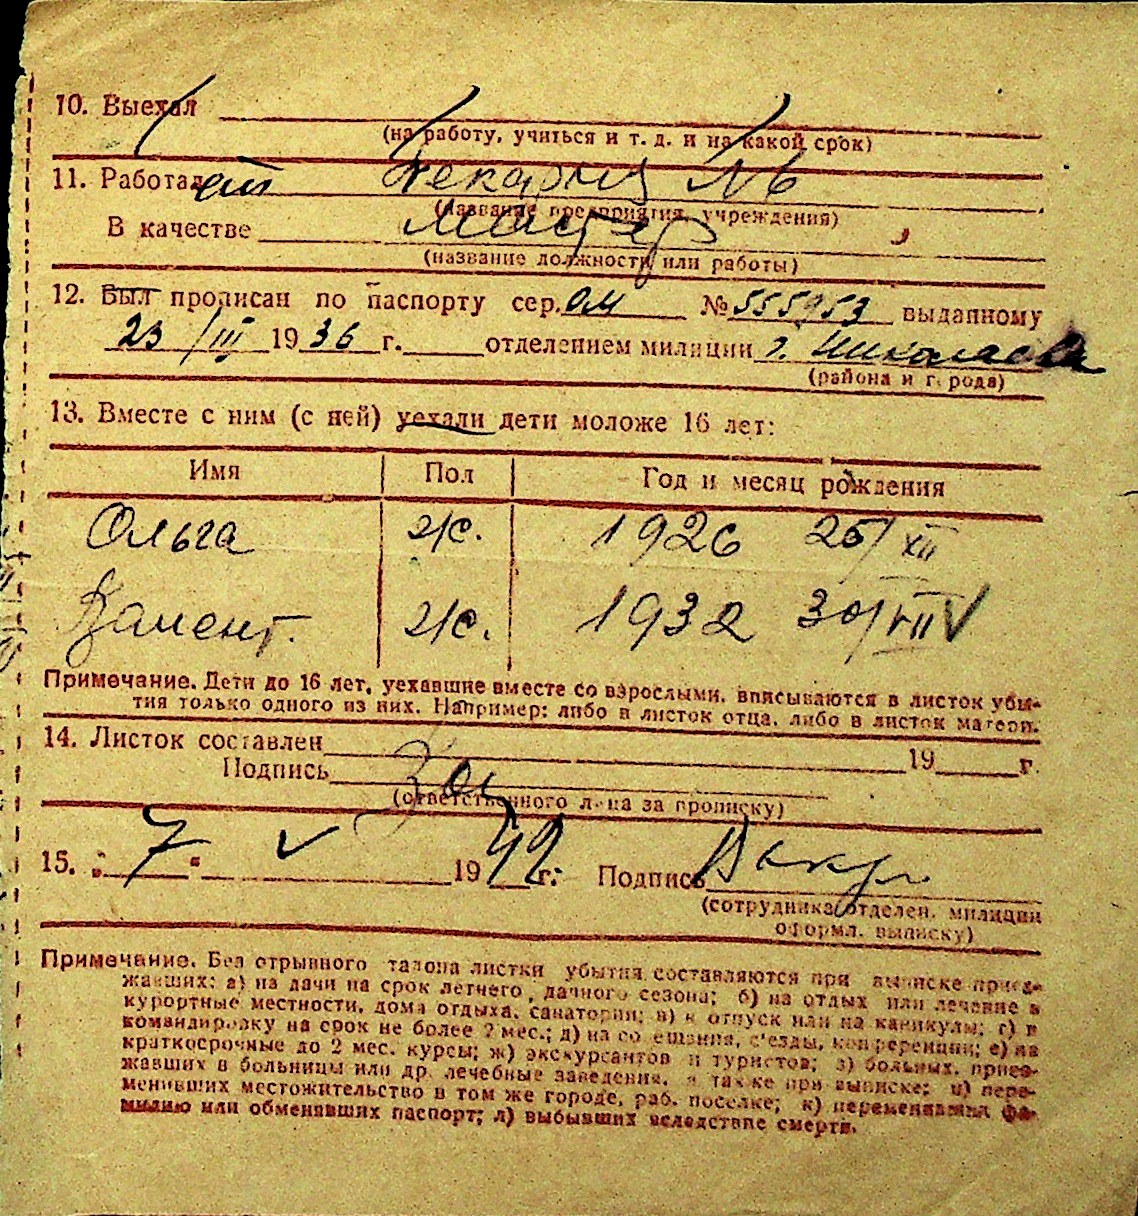 10. Выехал
(на работу, учиться и т. д. и на какой срок)
11. Работает Пекарня №6
(название предприятия, учреждения)
В качестве мастер
(название должности или работы)
12. Был прописан по паспорту сер. ОМ № 555953 выданному
23/III 1936 г. отделением милиции г. Николаева
(района и города)
13. Вместе с ним (с ней) уехали дети моложе 16 лет:
Имя Пол Год и месяц рождения
Ольга ж. 1926 25/XII
ж. 1932 30/VII V
Примечание. Дети до 16 лет, уехавшие вместе со взрослыми, вписываются в листок убы-
тия только одного из них. Например: либо в листок отца, либо в листок матери.
14. Листок составлен 19 г.
Подпись
(ответственного лица за прописку)
15. „7“ V 1942 г. Подпись
(сотрудника отделен. милиции
оформл. выписку)
Примечание. Без отрывного талона листки убытия составляются при выписке приез-
жавших: а) на дачи на срок летнего, дачного сезона; б) на отдых или лечение в
курортные местности, дома отдыха, санатории; в) в отпуск или на каникулы; г) в
командировку на срок не более 2 мес.; д) на совещания, съезды, конференции; е) на
краткосрочные до 2 мес. курсы; ж) экскурсантов и туристов; з) больных, приез-
жавших в больницы или др. лечебные заведения, а также при выписке; и) пере-
менивших местожительство в том же городе, раб. поселке; к) переменивших фа-
милию или обменявших паспорт; л) выбывших вследствие смерти.